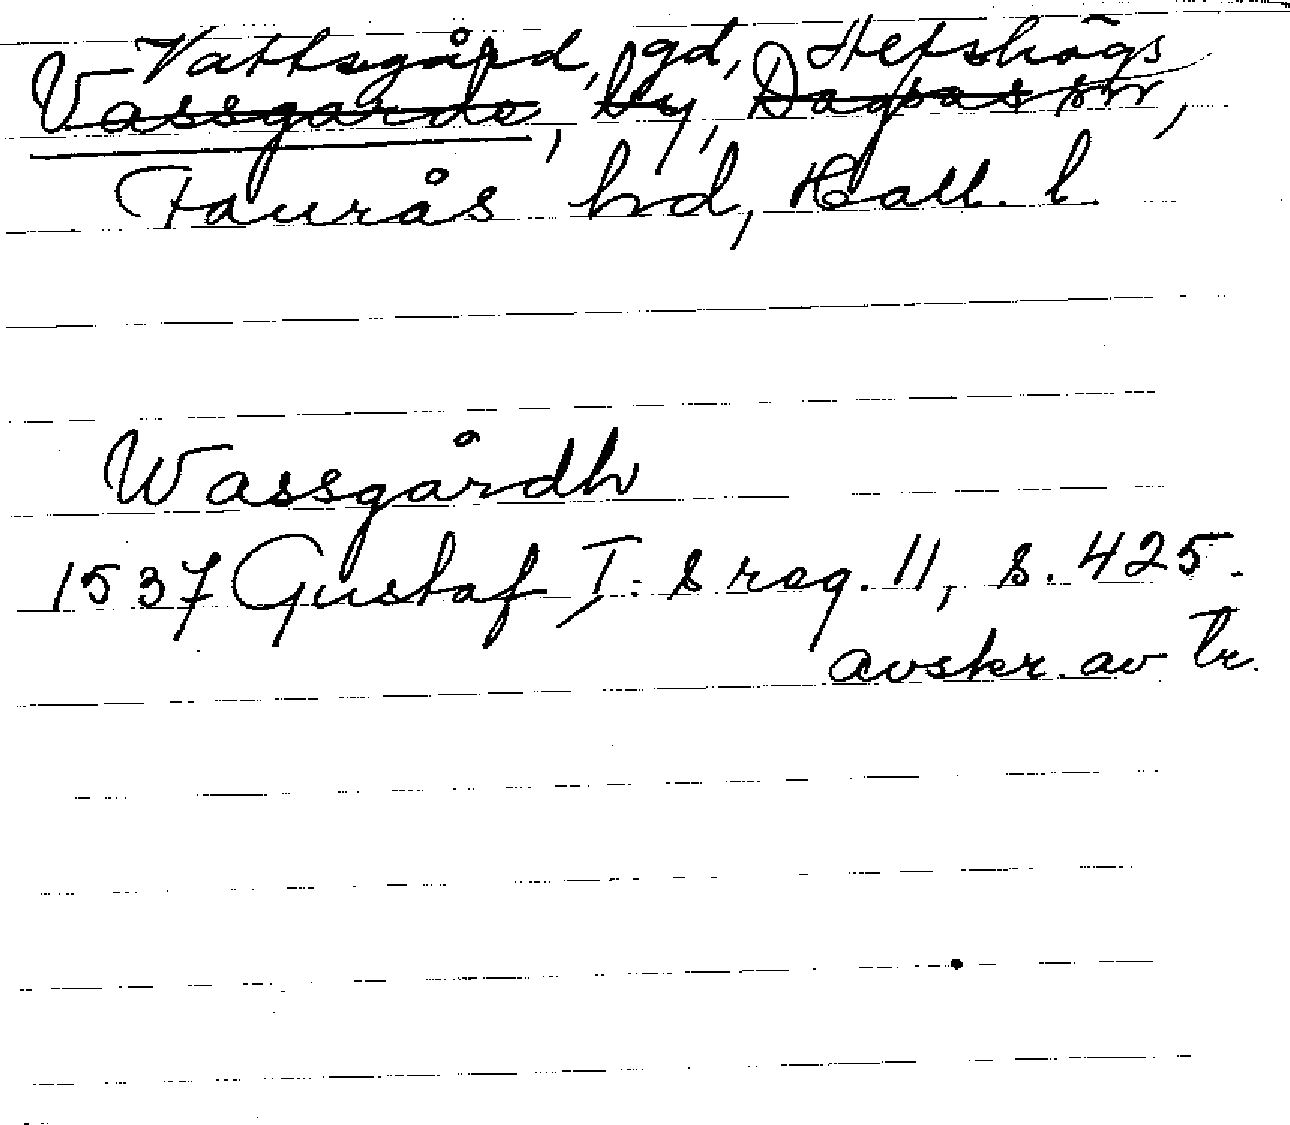 Vattsgård, gd, Hetshögs
Vassgårde, by, Dagsås sn,
Faurås hd, Hall. l.
Wassgårdh
1537 Gustaf I:s reg. 11, s. 425.
avskr. av tr.